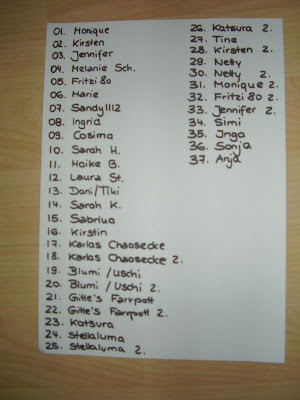 01. Monique
02. Kirsten
03. Jennifer
04. Melanie Sch.
05. Fritzi 80
06. Marie
07. Sandy1112
08. Ingrid
09. Cosima
10. Sarah H.
11. Haike B.
12. Laura St.
13. Dani/Tiki
14. Sarah K.
15. Sabrina
16. Kirstin
17. Karlas Chaosecke
18. Karlas Chaosecke 2.
19. Blumi /Uschi
20. Blumi /Uschi 2.
21. Gitte's Farvpott
22. Gitte's Farvpott 2.
23. Katsura
24. Stellaluma
25. Stellaluma 2.
26. Katsura 2.
27. Tine
28. Kirsten 2.
29. Netty
30. Netty 2.
31. Monique 2.
32. Fritzi 80 2.
33. Jennifer 2.
34. Simi
35. Inga
36. Sonja
37. Anja